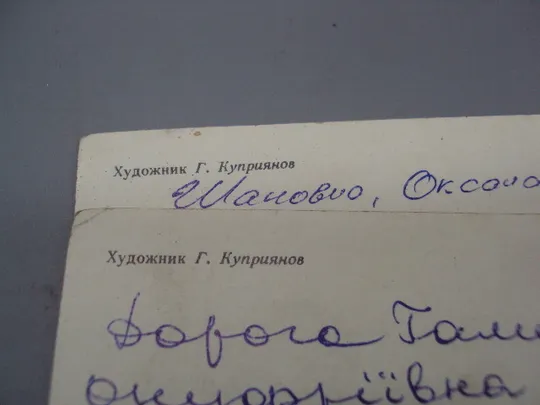 Художник Г. Куприянов
Шановна, Оксана
Художник Г. Куприянов
Дорога